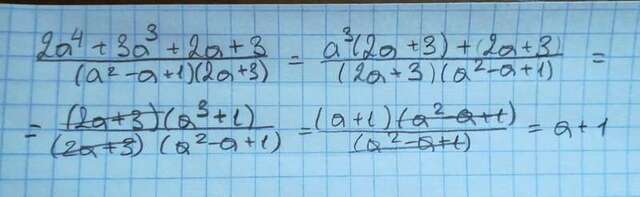 (2a⁴ + 3a³ + 2a + 3) / ((a² - a + 1)(2a + 3)) = (a³(2a + 3) + (2a + 3)) / ((2a + 3)(a² - a + 1)) =
= ((2a + 3)(a³ + 1)) / ((2a + 3)(a² - a + 1)) = ((a + 1)(a² - a + 1)) / (a² - a + 1) = a + 1